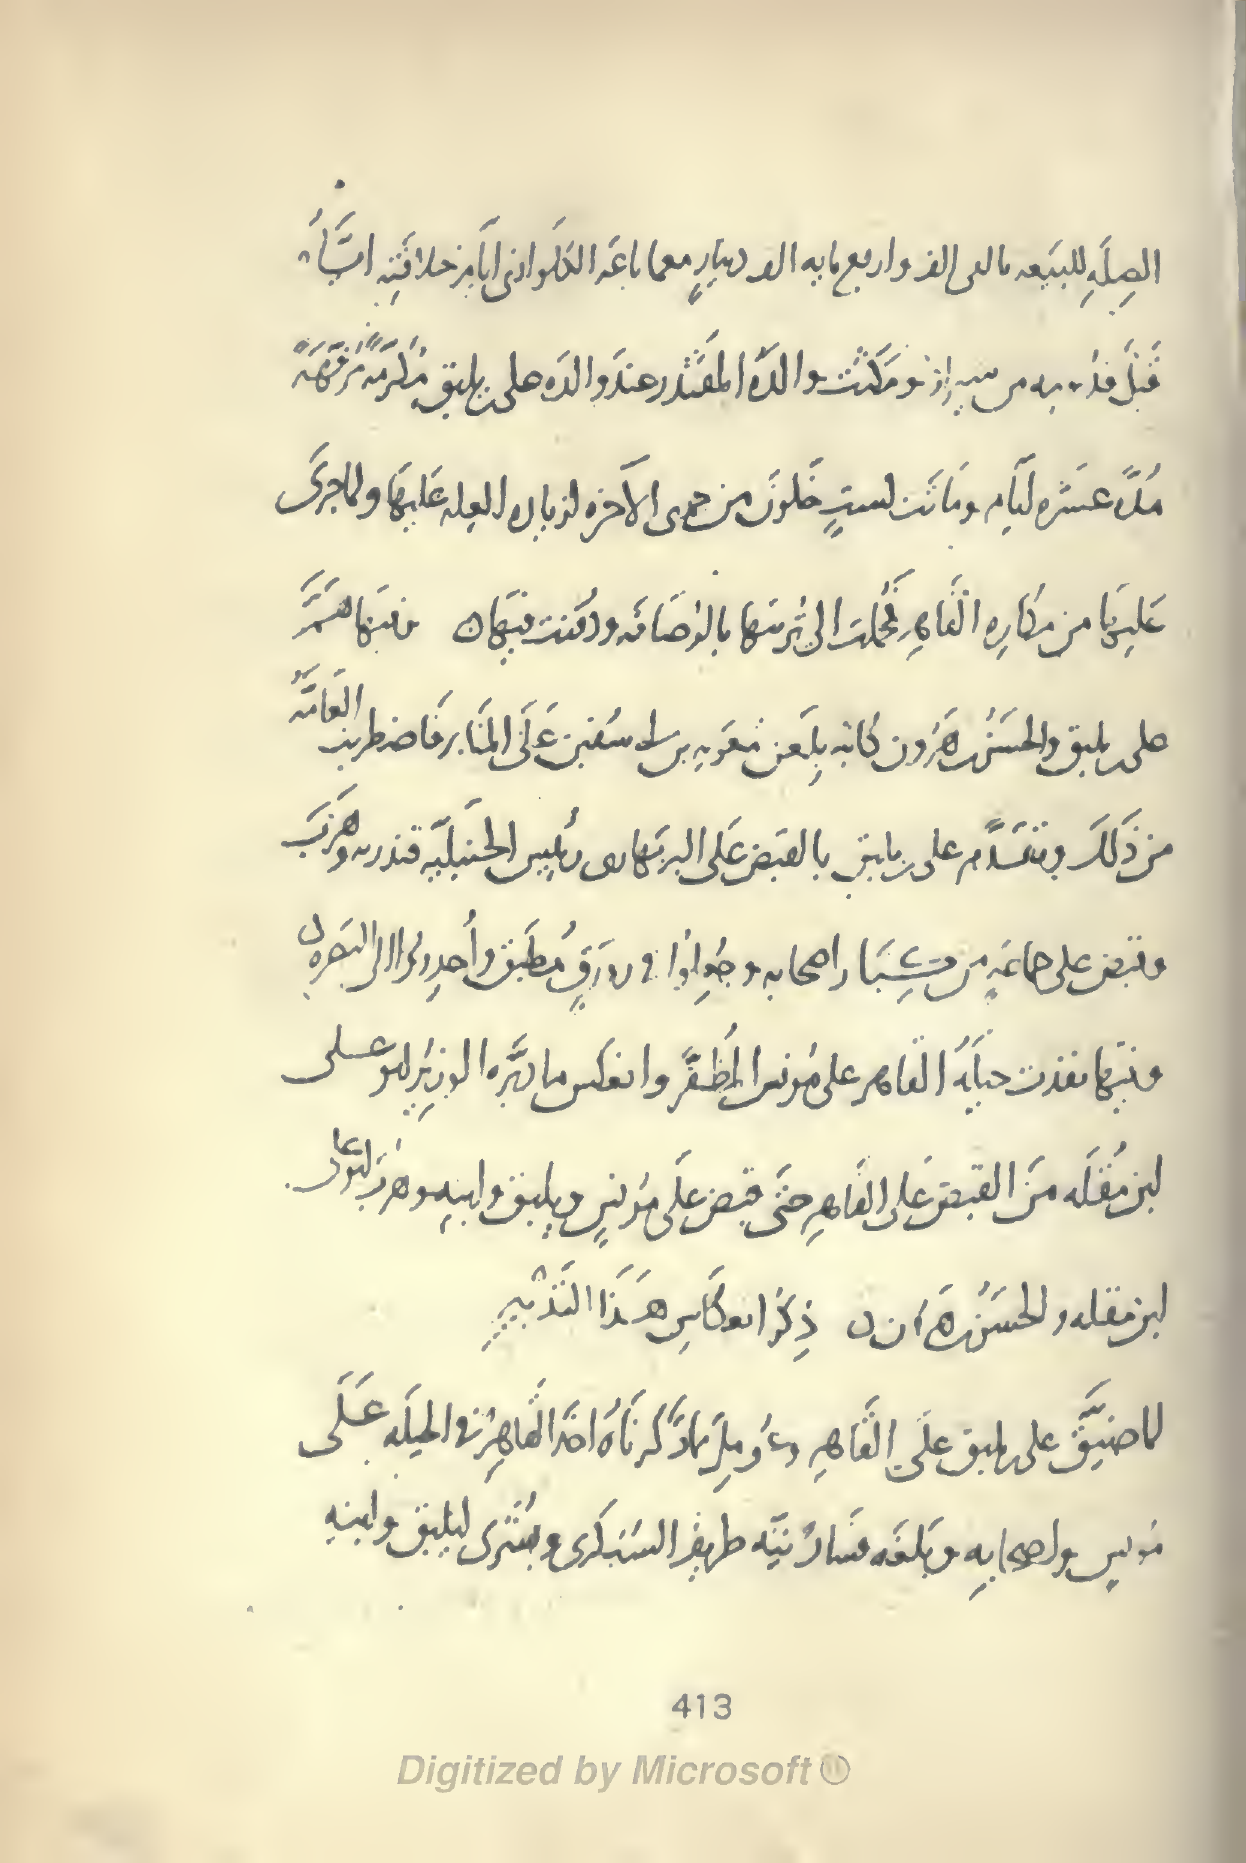 الصِلَه للبَيعه بالفى الف واربع مايه الف دينارٍ معما باعَه الكلَواذنى ايّام خلافَتِه
قَبلَ مُؤنس ومَكَثَت والدَه المقتَدر عندَ والدَه على بن يلبق مُكرَمَةً مُرَفَّهَةً
مُدَّه عَشره ايّام ومَاتَت لستٍ خَلَونَ من جمدى الآخره لزياده العِله عَليهَا ولما جَرَى
عَليهَا من مكَاره القَاهِر فحُمِلت الى تُربتها بالرُصَافَه ودُفنت فيهَا ن وفيهَا هَمَّ
على بن يلبق والحَسَنُ بن هَرُون كاتبه بِلَعن مُعَويه بن ابى سُفين عَلَى المنَابر فاضطربت العَامَّه
من ذَلكَ وتقَدَّم على بن يلبق بالقبض عَلى البربَهارى رئيس الحَنبَليّه فنذر به وهَرَبَ
وقبض على جماعَهٍ من كِبَار اصحابه وجُعِلوا فى زورَقٍ مُطبَق وأحدِروُا الى البَصره ن
وفيهَا نفذت حيلَه القَاهر على مُونس المُظَفَّر وانعكس ما دبَّره الوزيرُ ابو عــلى
ابن مُقلَه منَ القَبض عَلى القَاهِر حَتّى قبض على مُونسٍ ويلبق وابنه وهرَبَ ابو على
ابن مقله والحَسَنُ بن هَرُون ن ذِكرُ انعكَاسِ هَذَا التَدبيرِ
لما ضيَّقَ على بن يلبق عَلَى القَاهِر وعُومِلَ بمَا ذَكرنَاهُ اخَذَ القَاهِرُ فى الحيلَه عَـلَى
مُونس واصحابه وبَلغَه فسَادُ نيَّه طريف السُبكرى وبُشرَى ليلبق وابنه
413
Digitized by Microsoft ®